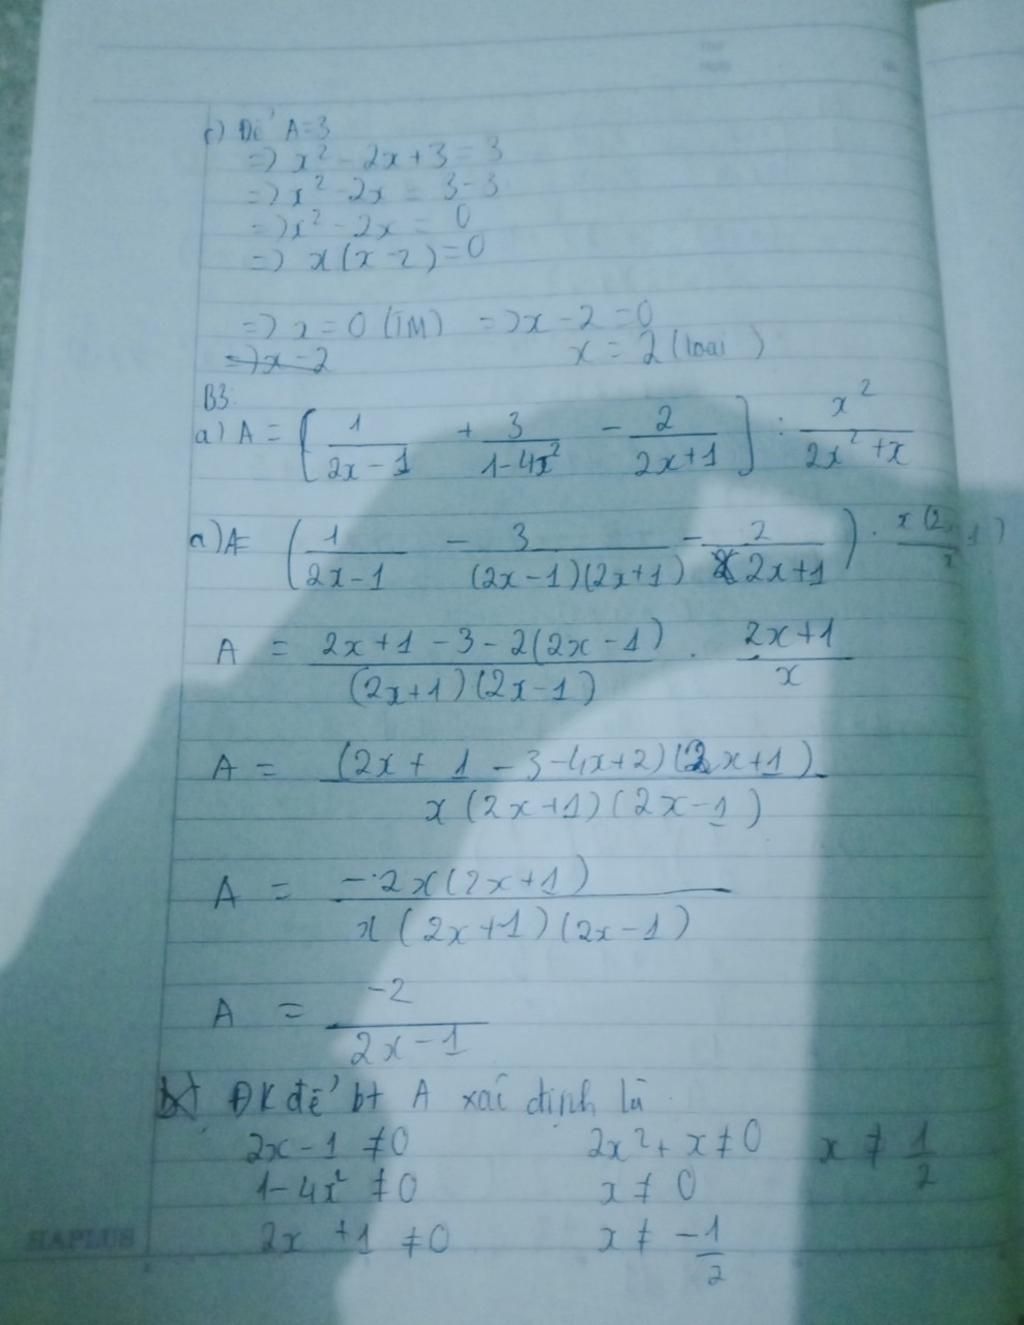 c) Để A=3
=> x² - 2x + 3 = 3
=> x² - 2x = 3-3
=> x² - 2x = 0
=> x(x-2)=0
=> x = 0 (TM) => x - 2 = 0
=> x-2 x = 2 (loại)
B3:
a) A = [1/(2x-1) + 3/(1-4x²) - 2/(2x+1)] : x²/(2x²+x)
a) A= (1/(2x-1) - 3/((2x-1)(2x+1)) - 2/(2x+1)) .
A = (2x+1-3-2(2x-1))/((2x+1)(2x-1)) . (2x+1)/x
A = ((2x+1-3-4x+2)(2x+1))/(x(2x+1)(2x-1))
A = (-2x(2x+1))/(x(2x+1)(2x-1))
A = -2/(2x-1)
b) ĐK để bt A xác định là
2x-1 ≠0 2x²+x≠0 x ≠ 1/2
1-4x² ≠0 x ≠ 0
2x +1 ≠0 x ≠ -1/2
HAPLUS